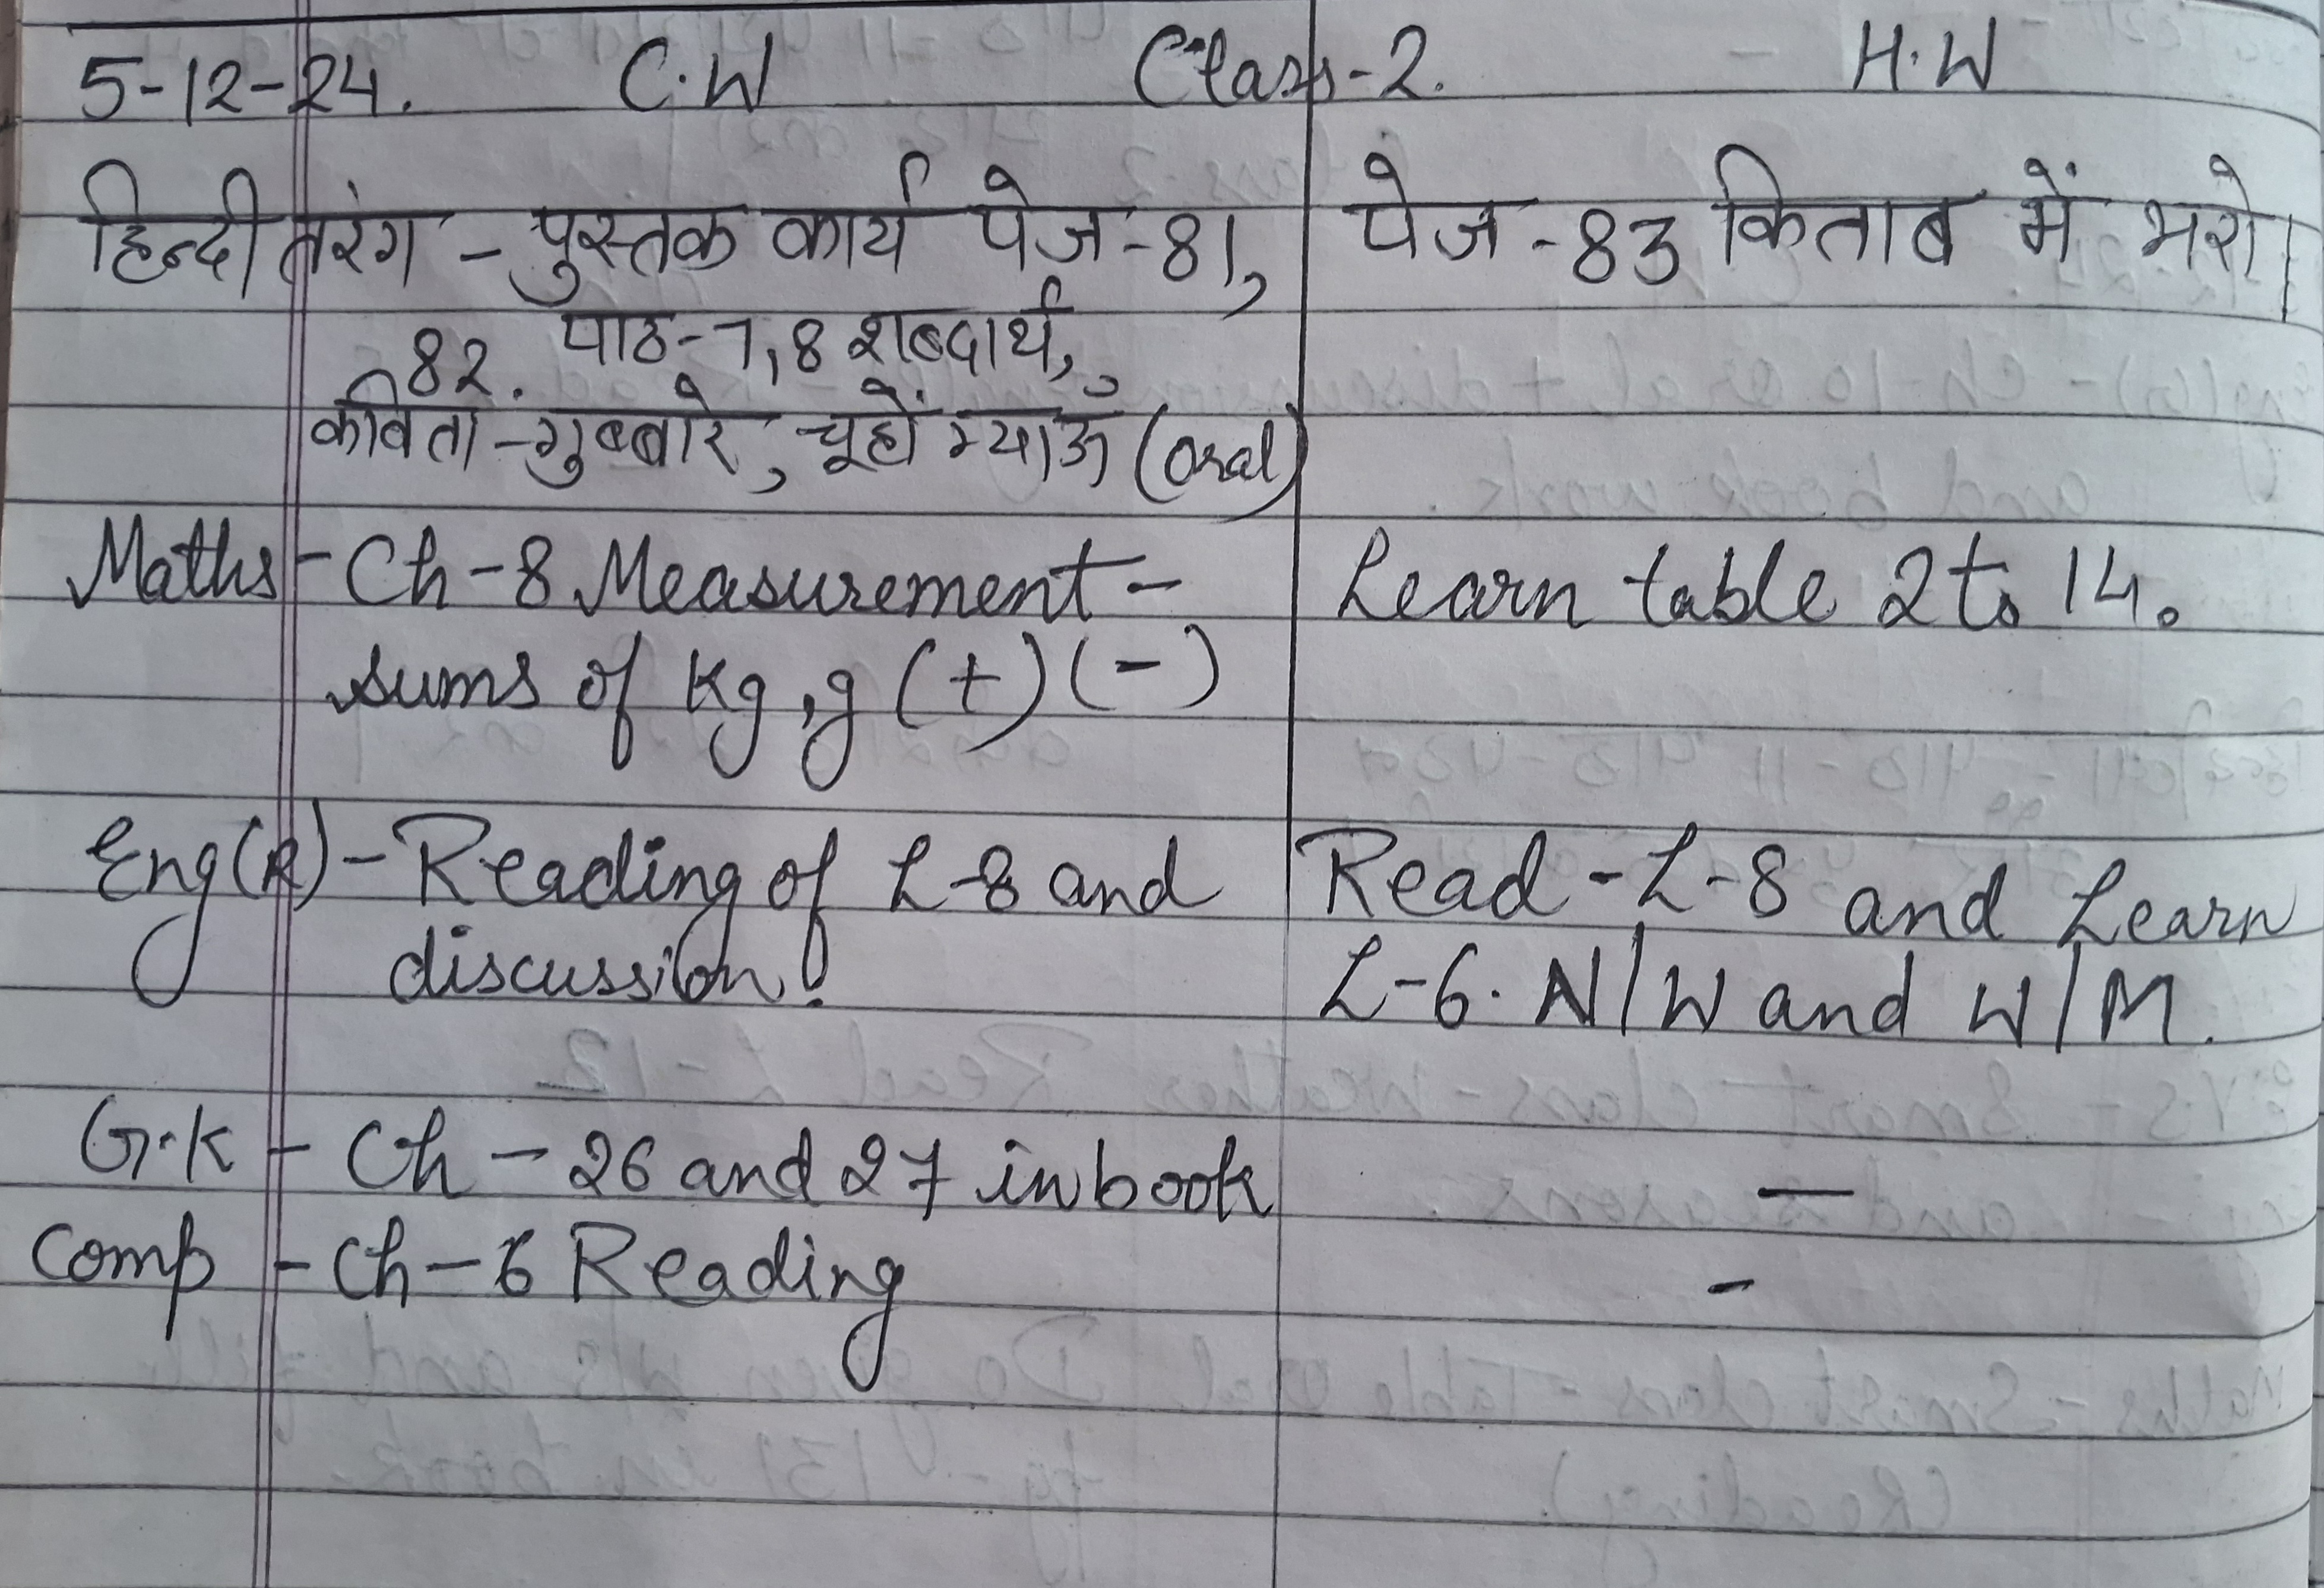 5-12-24. C.W Class-2. H.W
हिन्दी तरंग - पुस्तक कार्य पेज-81, पेज-83 किताब में भरो।
82. पाठ-7,8 शब्दार्थ,
कविता-गुब्बारे, चूहों म्याऊँ (oral)
Maths - Ch-8 Measurement - Learn table 2 to 14.
sums of kg, g (+) (-)
Eng(R) - Reading of L-8 and Read - L-8 and Learn
discussion. L-6. N/W and W/M.
G.K - Ch - 26 and 27 in book —
Comp - Ch-6 Reading -